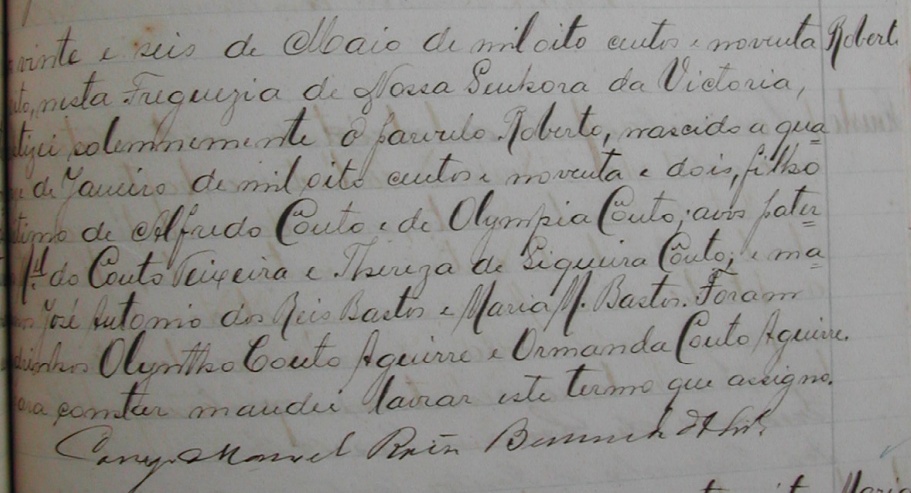 vinte e seis de Maio de mil oito centos e noventa Robert
nesta Freguezia de Nossa Senhora da Victoria,
tizei solemnemente o parvulo Roberto, nascido a qua=
de Janeiro de mil oito centos e noventa e dois, filho
timo de Alfredo Couto e de Olympia Couto; avos pater=
do Couto Teixeira e Thereza de Siqueira Couto; e ma=
José Antonio dos Reis Bastos e Maria M. Bastos. Foram
drinhos Olyntho Couto Aguirre e Ormanda Couto Aguirre.
ara constar mandei lavrar este termo que assigno.
Manoel
Maria